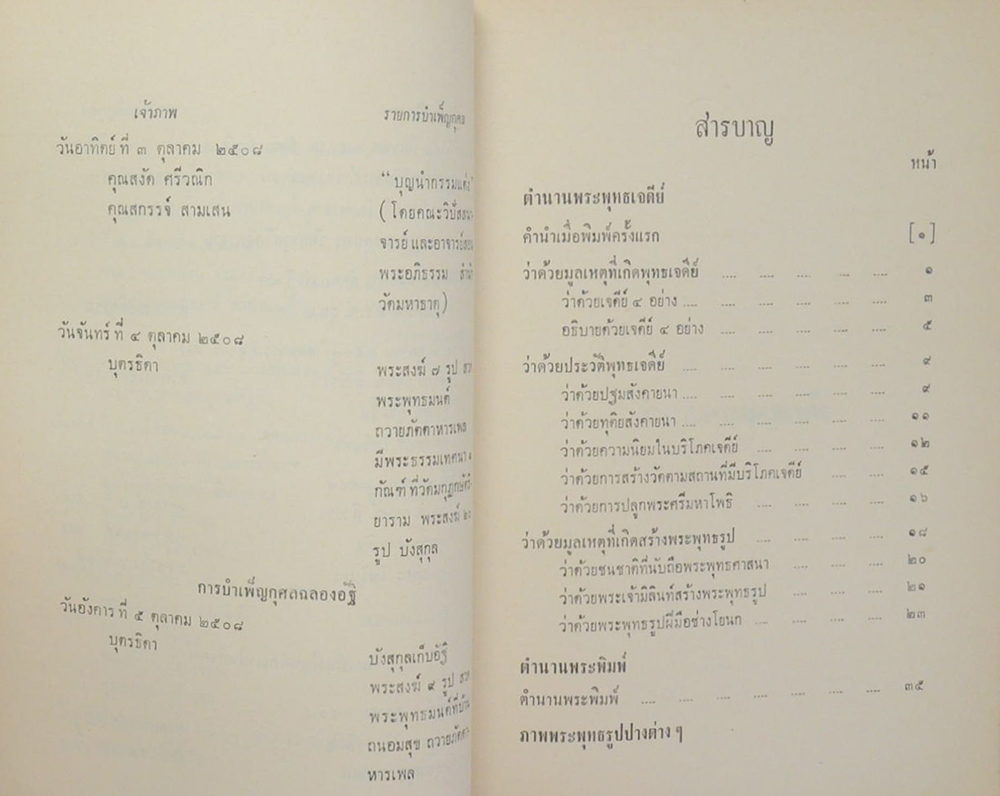 เจ้าภาพ รายการบำเพ็ญกุศล
วันอาทิตย์ ที่ ๓ ตุลาคม ๒๕๐๘
คุณสงัด ศรีวณิก "บุญนำกรรมแต่ง"
คุณสกรรจ์ สามเสน (โดยคณะวิปัสสนา
จารย์ และอาจารย์สอน
พระอภิธรรม สำนัก
วัดมหาธาตุ)
วันจันทร์ ที่ ๔ ตุลาคม ๒๕๐๘
บุตรธิดา พระสงฆ์ ๗ รูป สวด
พระพุทธมนต์
ถวายภัตตาหารเพล
มีพระธรรมเทศนา ๑
กัณฑ์ ที่วัดมกุฏกษัตริ
ยาราม พระสงฆ์
รูป บังสุกุล
การบำเพ็ญกุศลฉลองอัฐิ
วันอังคาร ที่ ๕ ตุลาคม ๒๕๐๘
บุตรธิดา บังสุกุลเก็บอัฐิ
พระสงฆ์ ๙ รูป สวด
พระพุทธมนต์ที่บ้าน
ถนอมสุข ถวายภัตตา
หารเพล
สารบาญ
หน้า
ตำนานพระพุทธเจดีย์
คำนำเมื่อพิมพ์ครั้งแรก [๑]
ว่าด้วยมูลเหตุที่เกิดพุทธเจดีย์ .... .... .... .... .... ๑
ว่าด้วยเจดีย์ ๔ อย่าง .... .... .... .... .... ๓
อธิบายด้วยเจดีย์ ๔ อย่าง .... .... .... .... .... ๕
ว่าด้วยประวัติพุทธเจดีย์ .... .... .... .... .... ๙
ว่าด้วยปฐมสังคายนา .... .... .... .... .... ๙
ว่าด้วยทุติยสังคายนา .... .... .... .... .... ๑๑
ว่าด้วยความนิยมในบริโภคเจดีย์ .... .... .... .... ๑๒
ว่าด้วยการสร้างวัดตามสถานที่มีบริโภคเจดีย์ .... .... .... ๑๕
ว่าด้วยการปลูกพระศรีมหาโพธิ .... .... .... .... ๑๖
ว่าด้วยมูลเหตุที่เกิดสร้างพระพุทธรูป .... .... .... .... ๑๘
ว่าด้วยชนชาติที่นับถือพระพุทธศาสนา .... .... .... ๒๐
ว่าด้วยพระเจ้ามิลินท์สร้างพระพุทธรูป .... .... .... ๒๑
ว่าด้วยพระพุทธรูปฝีมือช่างโยนก .... .... .... .... ๒๓
ตำนานพระพิมพ์
ตำนานพระพิมพ์ .... .... .... .... .... .... ๓๕
ภาพพระพุทธรูปปางต่าง ๆ